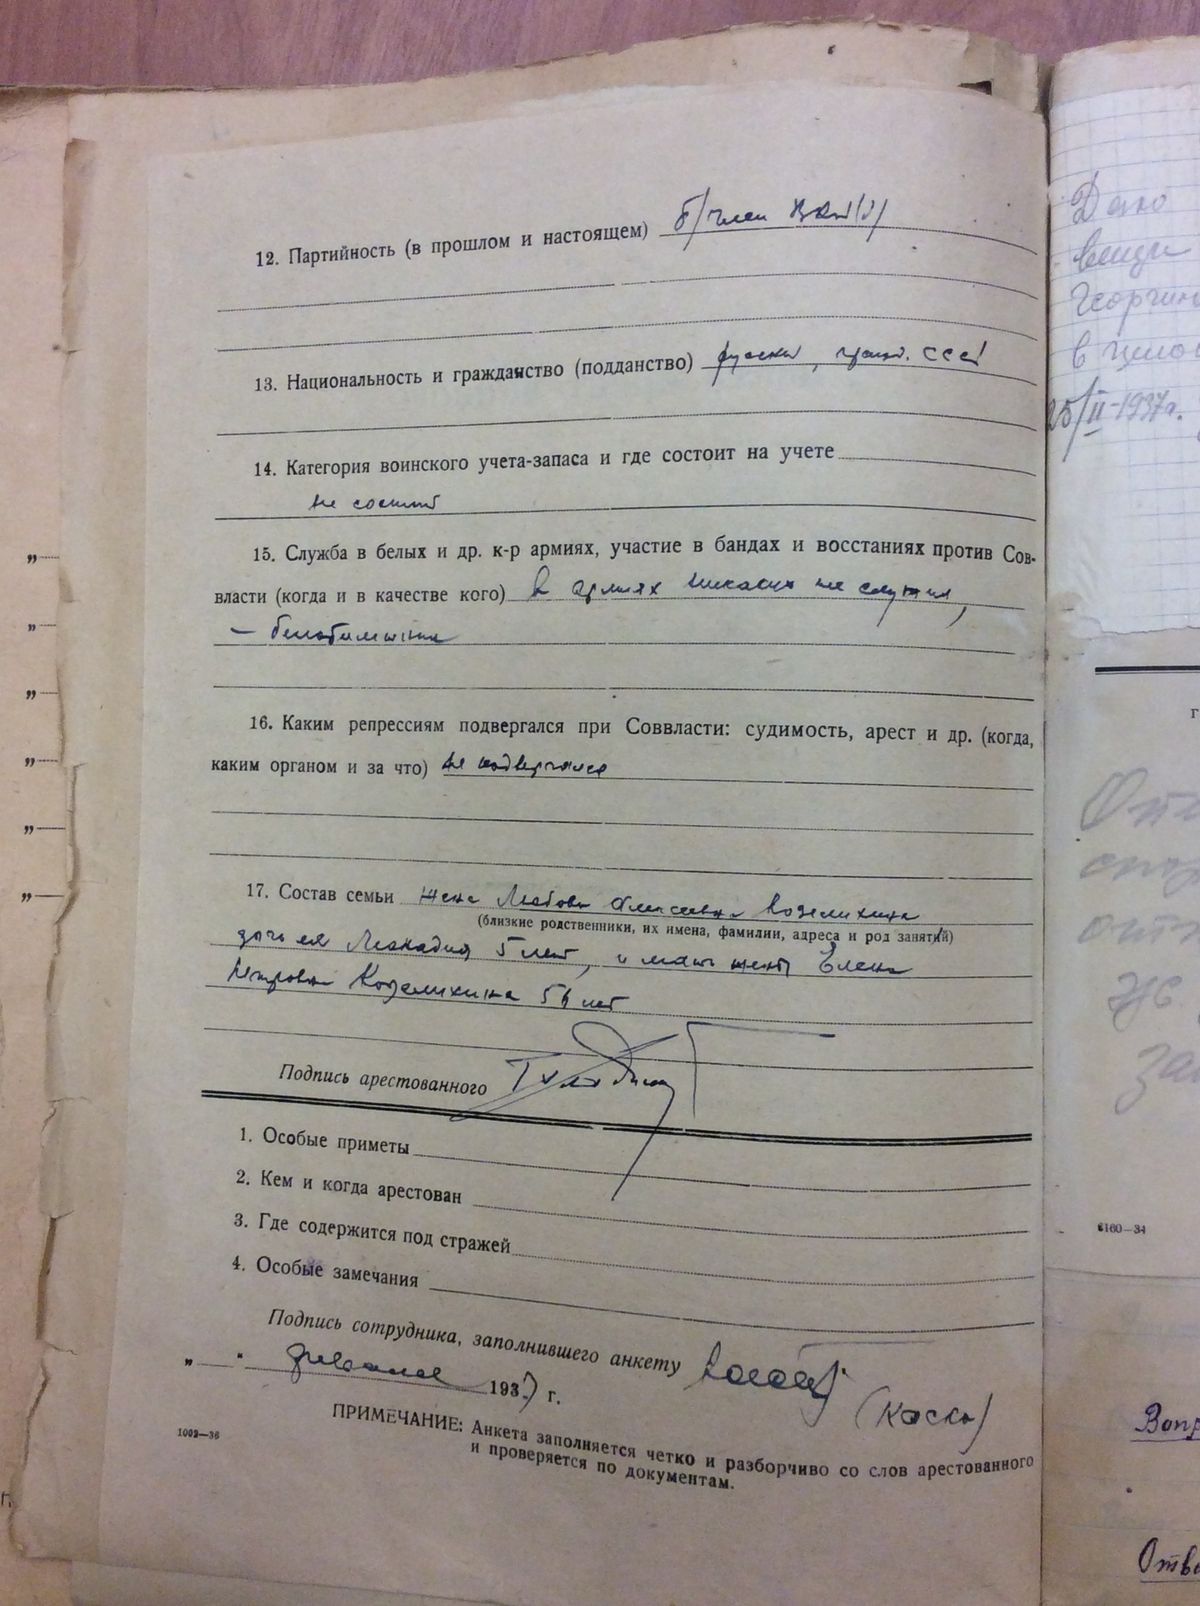 12. Партийность (в прошлом и настоящем) б/член ВКП(б)
13. Национальность и гражданство (подданство) русский, гражд. СССР
14. Категория воинского учета-запаса и где состоит на учете
не состоит
15. Служба в белых и др. к-р армиях, участие в бандах и восстаниях против Сов-
власти (когда и в качестве кого) в армиях никаких не служил,
16. Каким репрессиям подвергался при Соввласти: судимость, арест и др. (когда,
каким органом и за что) не подвергался
17. Состав семьи жена Любовь Алексеевна
(близкие родственники, их имена, фамилии, адреса и род занятий)
дочь 5 лет, и мать жены Елена
Петровна 56 лет
Подпись арестованного
1. Особые приметы
2. Кем и когда арестован
3. Где содержится под стражей
4. Особые замечания
Подпись сотрудника, заполнившего анкету
„ “ февраля 1937 г.
(Коско)
ПРИМЕЧАНИЕ: Анкета заполняется четко и разборчиво со слов арестованного
и проверяется по документам.
1002—36
Даю
вещи
в
25/II-1937г.
6160—34